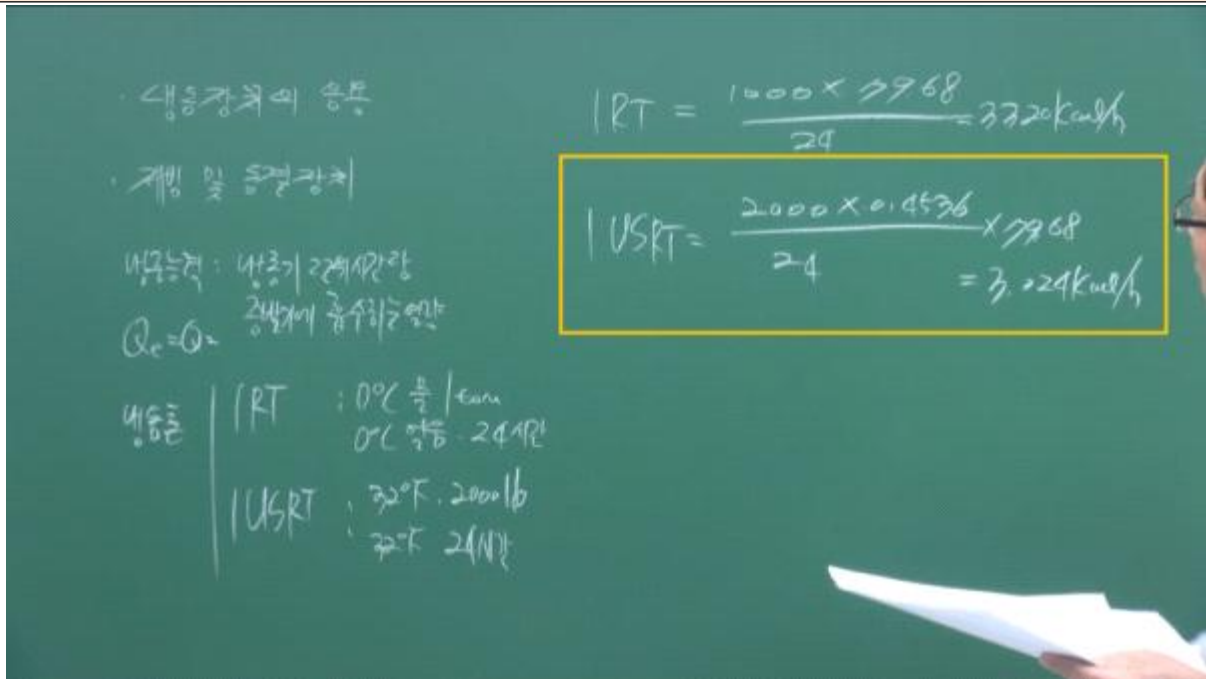 · 냉동장치의 응용
· 제빙 및 동결장치
냉동능력 : 냉동기 시간당
증발기에 흡수하는 열량
Qe=Q2
냉동톤
1RT : 0°C 물 1ton
0°C 얼음 · 24시간
1USRT : 32°F · 2000lb
32°F 24시간
1RT = 1000 × 79.68 / 24 = 3320kcal/h
1USRT = 2000 × 0.4536 / 24 × 79.68
= 3,024kcal/h